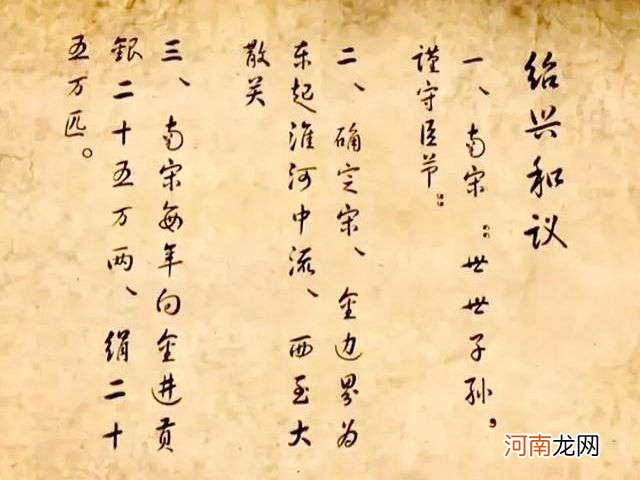 绍兴和议
一、南宋“世世子孙，
谨守臣节”。
二、确定宋、金边界为
东起淮河中流、西至大
散关
三、南宋每年向金进贡
銀二十五万两、绢二十
五万匹。
河南龙网